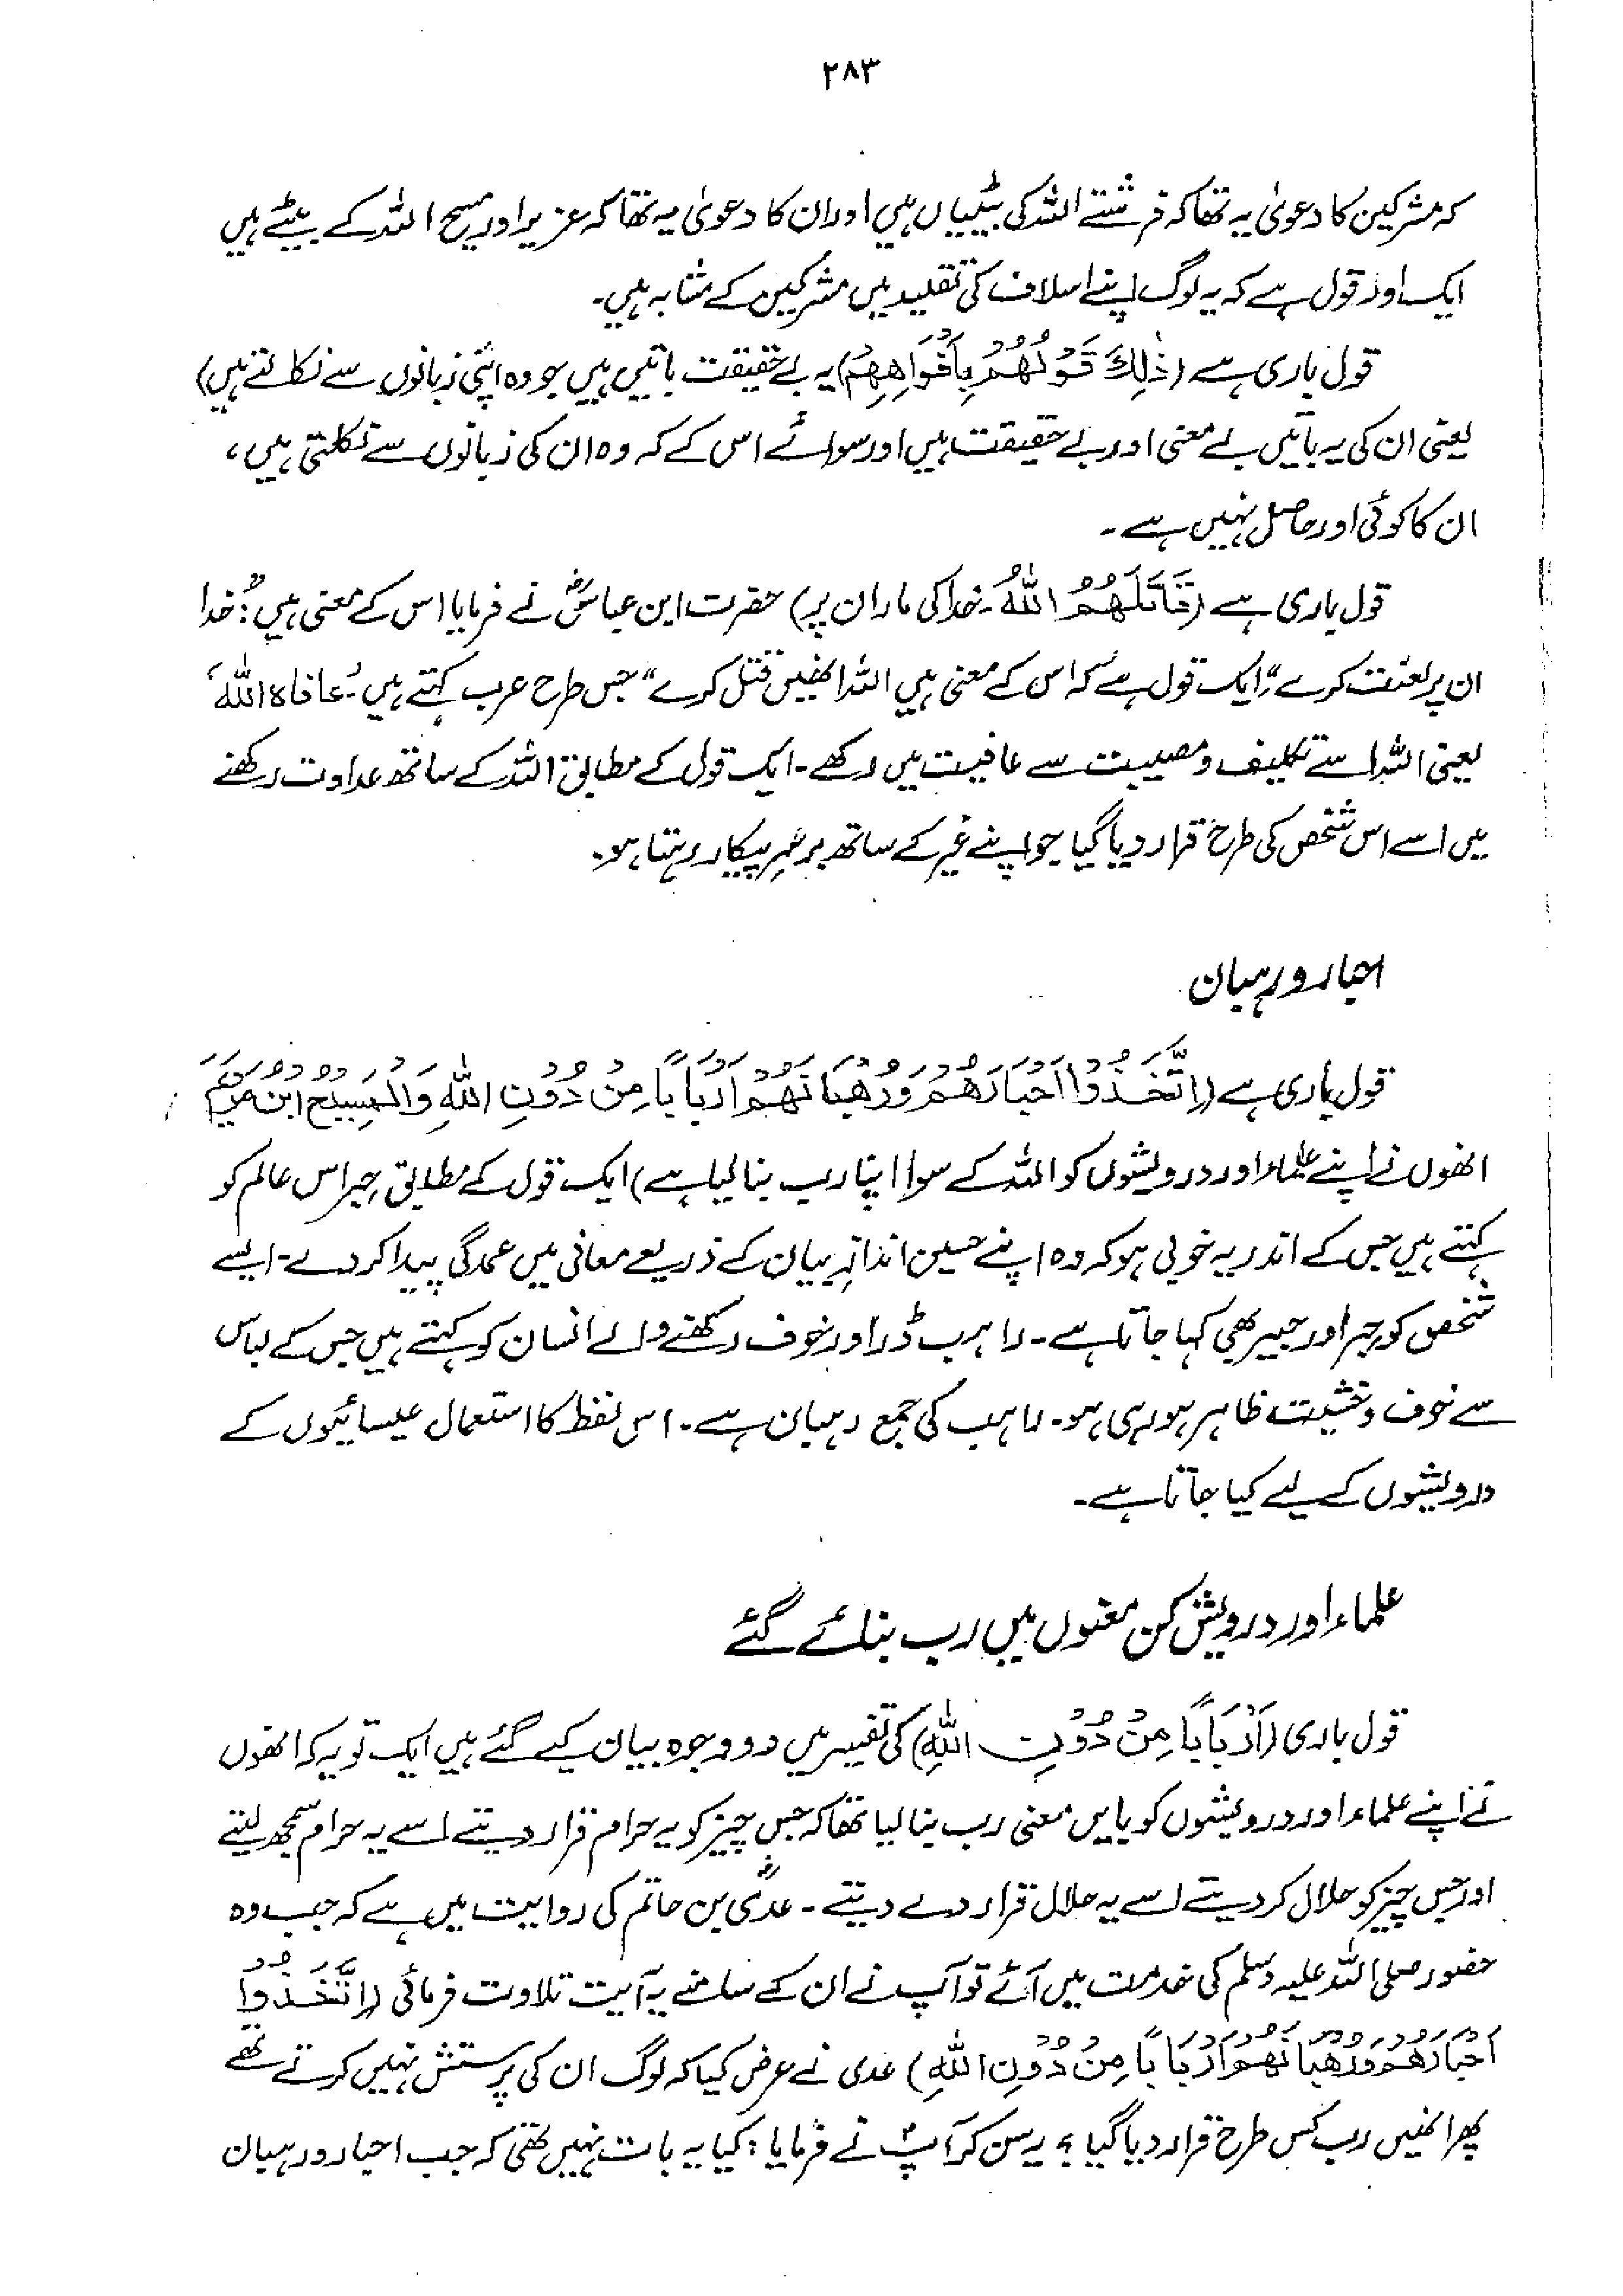 ۲۸۳
کہ مشرکین کا دعویٰ یہ تھا کہ فرشتے اللہ کی بیٹیاں ہیں اور ان کا دعویٰ یہ تھا کہ عزیر اور مسیح اللہ کے بیٹے ہیں
ایک اور قول ہے کہ یہ لوگ اپنے اسلاف کی تقلید میں مشرکین کے مشابہ ہیں۔
قول باری ہے (ذٰلِكَ قَوْلُهُمْ بِاَفْوَاهِهِمْ) یہ بے حقیقت باتیں ہیں جو وہ اپنی زبانوں سے نکالتے ہیں)
یعنی ان کی یہ باتیں بے معنی اور بے حقیقت ہیں اور سوائے اس کے کہ وہ ان کی زبانوں سے نکلتی ہیں،
ان کا کوئی اور حاصل نہیں ہے۔
قول باری ہے (قَاتَلَهُمُ اللهُ۔ خدا کی مار ان پر) حضرت ابن عباسؓ نے فرمایا اس کے معنی ہیں: "خدا
ان پر لعنت کرے" ایک قول ہے کہ اس کے معنی ہیں اللہ انھیں قتل کرے" جس طرح عرب کہتے ہیں۔ 'عافاہ اللہ'
یعنی اللہ اسے تکلیف و مصیبت سے عافیت میں رکھے۔ ایک قول کے مطابق اللہ کے ساتھ عداوت رکھنے
میں اسے اس شخص کی طرح قرار دیا گیا جو اپنے غیر کے ساتھ برسرِ پیکار رہتا ہو۔
احبار و رہبان
قول باری ہے (اِتَّخَذُوْا اَحْبَارَهُمْ وَرُهْبَانَهُمْ اَرْبَابًا مِنْ دُوْنِ اللهِ وَالْمَسِيْحَ ابْنَ مَرْيَمَ
انھوں نے اپنے علماء اور درویشوں کو اللہ کے سوا اپنا رب بنا لیا ہے) ایک قول کے مطابق حبر اس عالم کو
کہتے ہیں جس کے اندر یہ خوبی ہو کہ وہ اپنے حسین اندازِ بیان کے ذریعے معانی میں عمدگی پیدا کر دے۔ ایسے
شخص کو حبر اور حبیر بھی کہا جاتا ہے۔ راہب ڈر اور خوف رکھنے والے انسان کو کہتے ہیں جس کے لباس
سے خوف و خشیت ظاہر ہو رہی ہو۔ راہب کی جمع رہبان ہے۔ اس لفظ کا استعمال عیسائیوں کے
درویشوں کے لیے کیا جاتا ہے۔
علماء اور درویش کن معنوں میں رب بنائے گئے
قول باری (اَرْبَابًا مِنْ دُوْنِ اللهِ) کی تفسیر میں دو وجوہ بیان کیے گئے ہیں ایک تو یہ کہ انھوں
نے اپنے علماء اور درویشوں کو بایں معنی رب بنا لیا تھا کہ جس چیز کو یہ حرام قرار دیتے اسے یہ حرام سمجھ لیتے
اور جس چیز کو حلال کر دیتے اسے یہ حلال قرار دے دیتے۔ عدیؓ بن حاتم کی روایت میں ہے کہ جب وہ
حضور صلی اللہ علیہ وسلم کی خدمت میں آئے تو آپ نے ان کے سامنے یہ آیت تلاوت فرمائی (اِتَّخَذُوْا
اَحْبَارَهُمْ وَرُهْبَانَهُمْ اَرْبَابًا مِنْ دُوْنِ اللهِ) عدی نے عرض کیا کہ لوگ ان کی پرستش نہیں کرتے تھے
پھر انھیں رب کس طرح قرار دیا گیا؟ یہ سن کر آپؐ نے فرمایا: کیا یہ بات نہیں تھی کہ جب احبار و رہبان